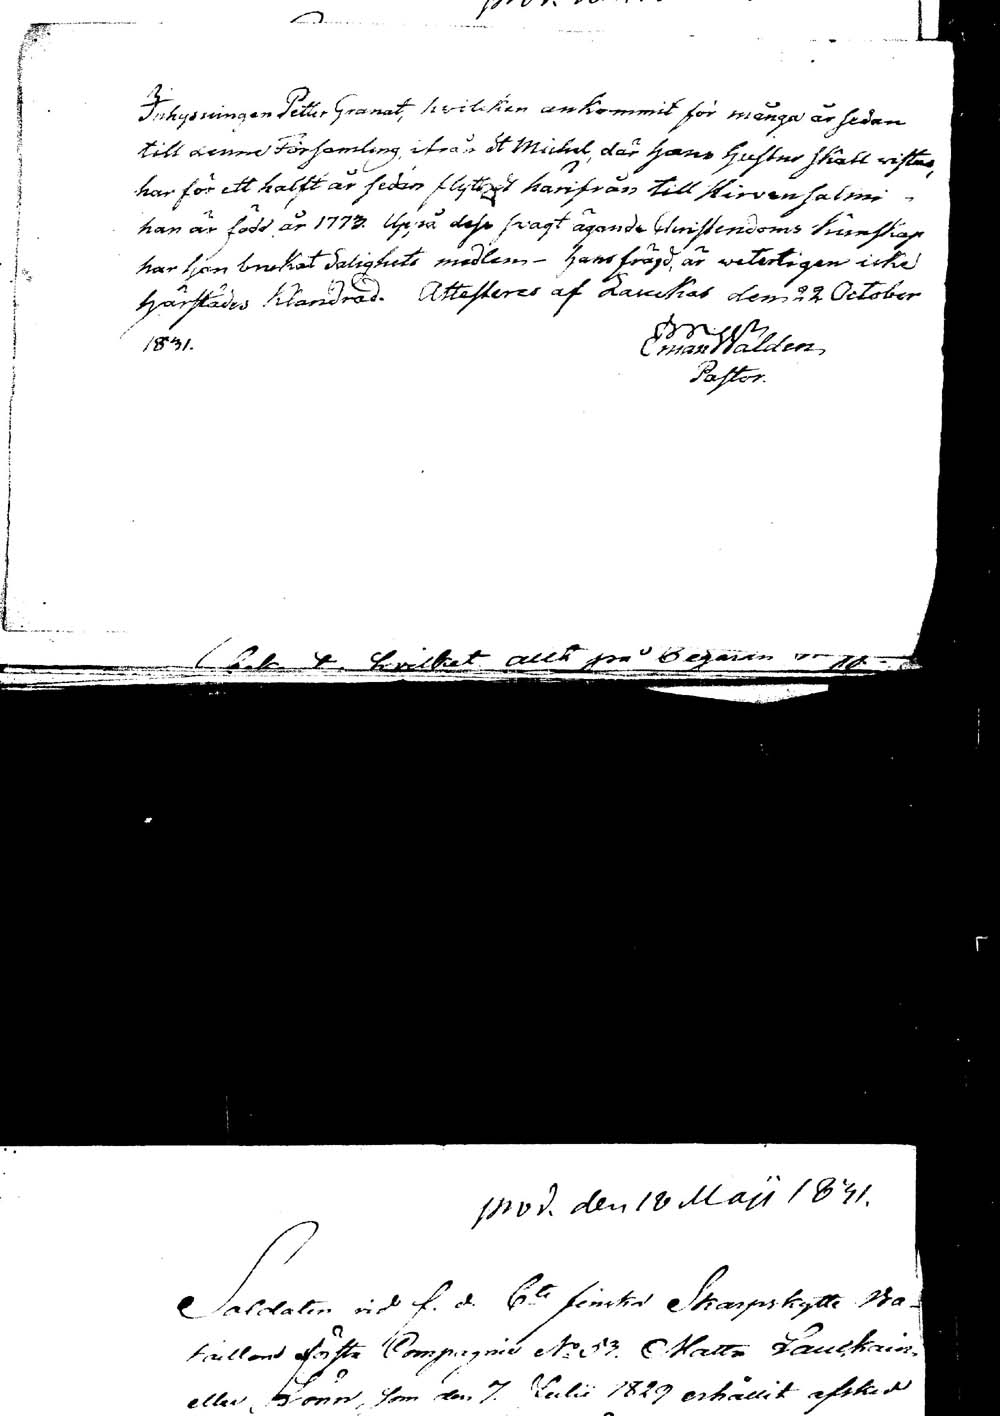 Inhysningen Petter Granat, hvilcken ankommit för många år sedan
till denna Församling ifrån St Michel, där hans Hustru skall wistas,
har för ett halft år sedan flyttat härifrån till Hirvensalmi
han är född år 1773. Uppå dess svagt ägande Christendoms Kunskap
har han brukat Salighets medlem - hans frägd är weterligen icke
härstädes Klandrad. Attesteras af Lauckas den 22 October
1831.
Eman Walden,
Pastor.
hvilket allt på begäran
prod. den 18 Maji 1831.
Soldaten vid f. d. 6te finska Skarpskytte Ba-
taillons första Compagnie No 53. Matts Lauckain
eller Lönn, som den 7. Julii 1829 erhållit afsked